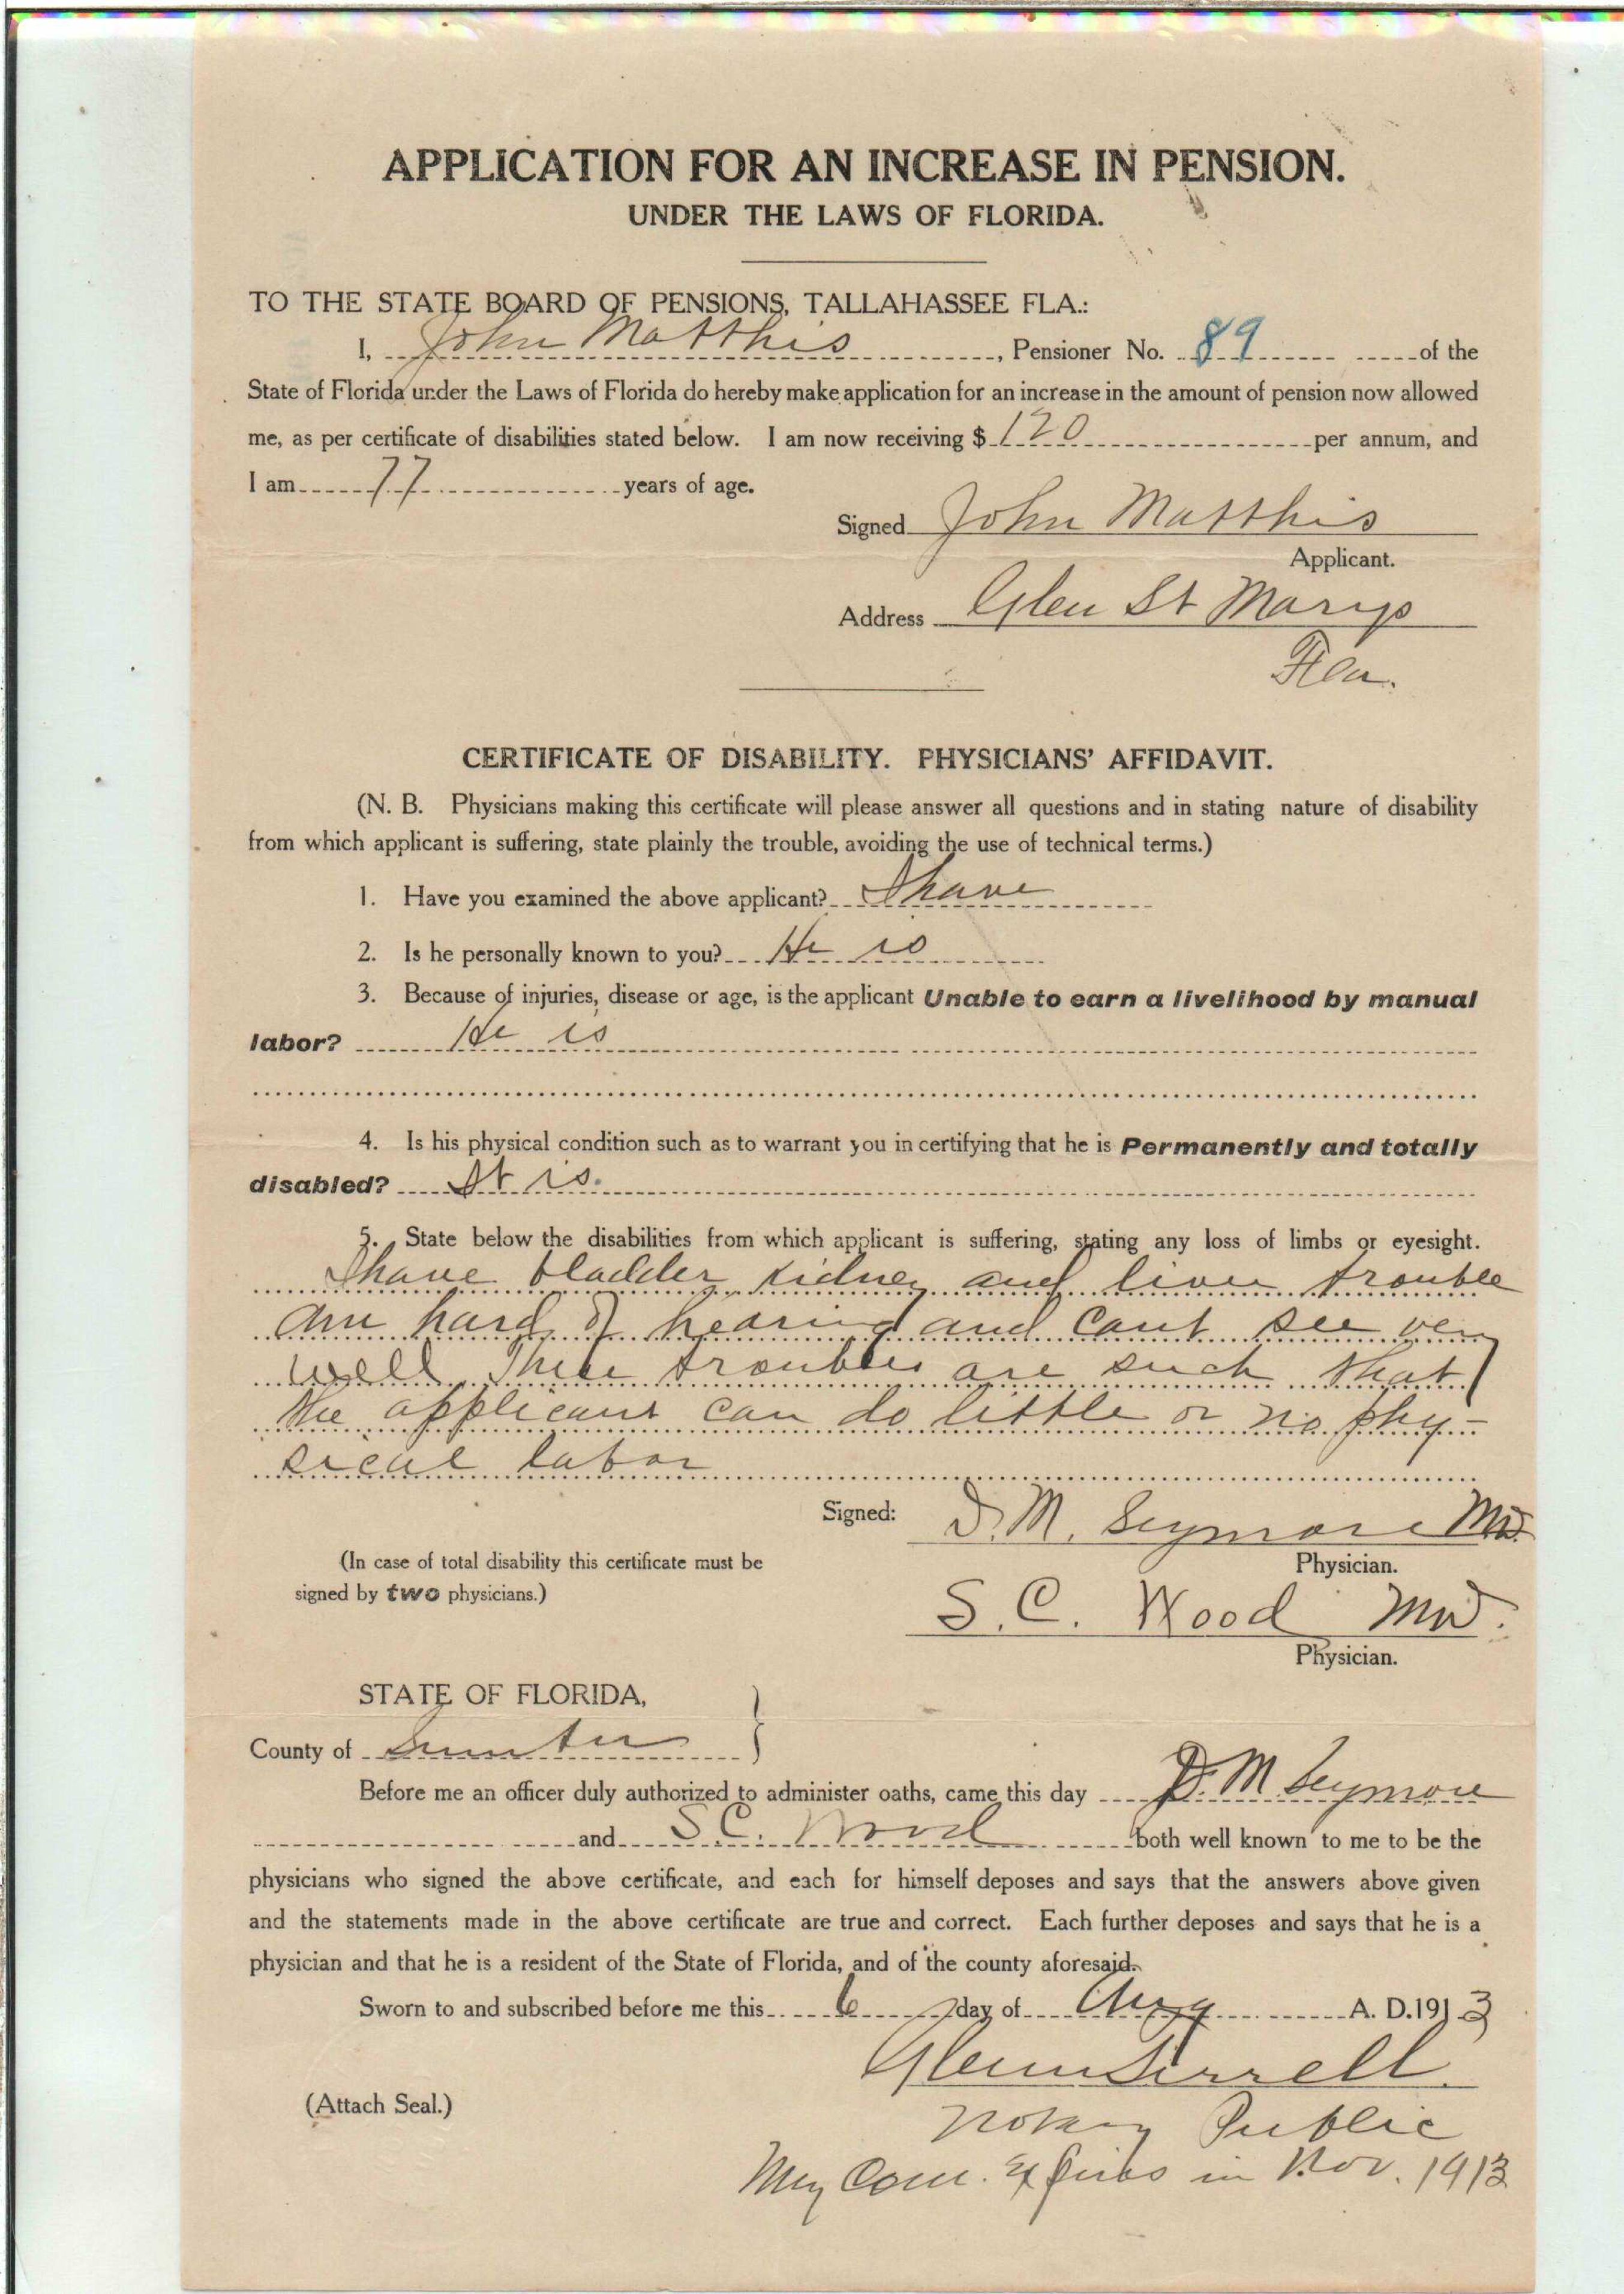 APPLICATION FOR AN INCREASE IN PENSION.
UNDER THE LAWS OF FLORIDA.
TO THE STATE BOARD OF PENSIONS, TALLAHASSEE FLA.:
I, John Matthis, Pensioner No. 89 of the
State of Florida under the Laws of Florida do hereby make application for an increase in the amount of pension now allowed
me, as per certificate of disabilities stated below. I am now receiving $ 120 per annum, and
I am 77 years of age.
Signed John Matthis
Applicant.
Address Glen St Marys
Fla.
CERTIFICATE OF DISABILITY. PHYSICIANS' AFFIDAVIT.
(N. B. Physicians making this certificate will please answer all questions and in stating nature of disability
from which applicant is suffering, state plainly the trouble, avoiding the use of technical terms.)
1. Have you examined the above applicant? I have
2. Is he personally known to you? He is
3. Because of injuries, disease or age, is the applicant Unable to earn a livelihood by manual
labor? He is
4. Is his physical condition such as to warrant you in certifying that he is Permanently and totally
disabled? It is.
5. State below the disabilities from which applicant is suffering, stating any loss of limbs or eyesight.
I have bladder kidney and liver trouble
am hard of hearing and cant see very
well These troubles are such that
the applicant can do little or no phy-
sical labor
Signed: D. M. Seymore MD.
Physician.
(In case of total disability this certificate must be
signed by two physicians.)
S. C. Wood MD.
Physician.
STATE OF FLORIDA, }
County of Sumter
Before me an officer duly authorized to administer oaths, came this day D. M. Seymore
and S. C. Wood both well known to me to be the
physicians who signed the above certificate, and each for himself deposes and says that the answers above given
and the statements made in the above certificate are true and correct. Each further deposes and says that he is a
physician and that he is a resident of the State of Florida, and of the county aforesaid.
Sworn to and subscribed before me this 6 day of Aug A. D. 1913
Glenn Terrell
(Attach Seal.)
Notary Public
My Com. Expires in Nov. 1913